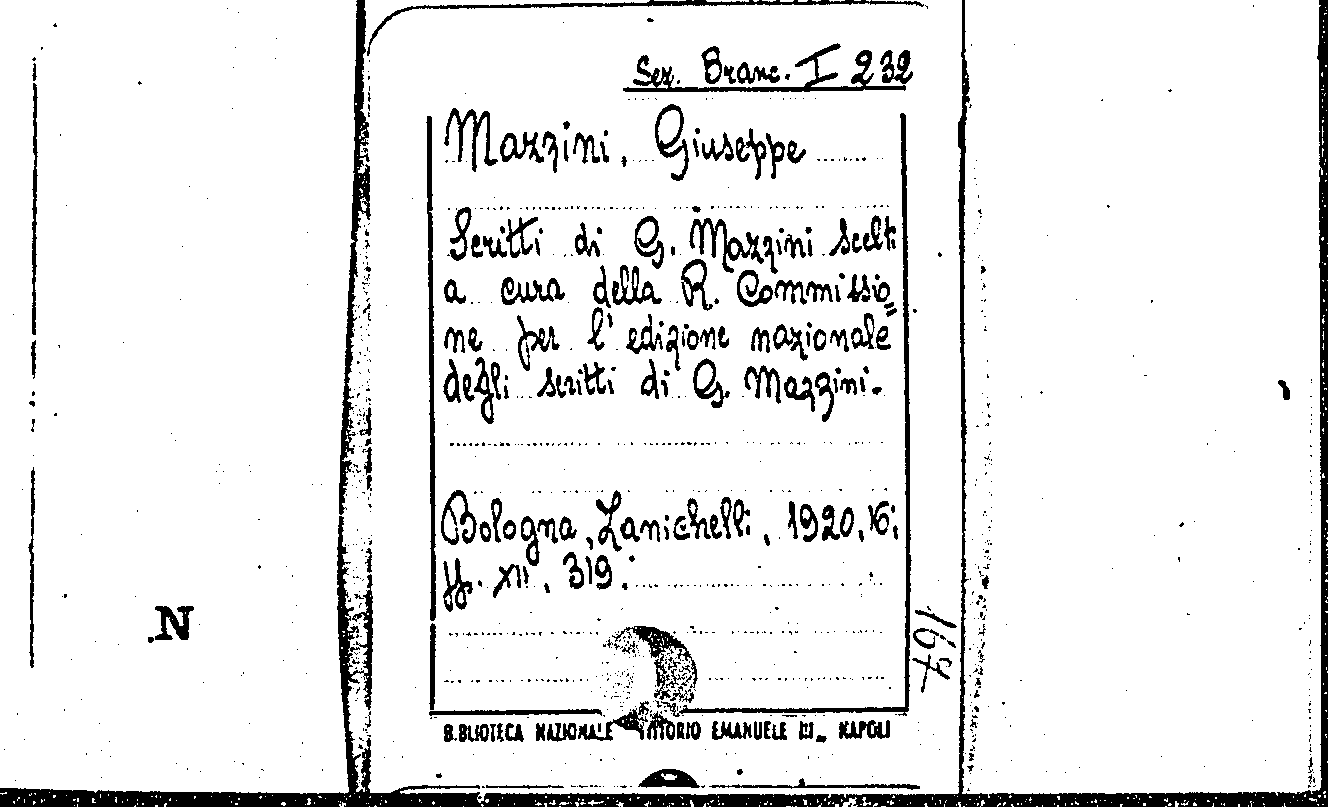 Sez. Branc. I 232
Mazzini, Giuseppe
Scritti di G. Mazzini scelti
a cura della R. Commissio=
ne per l'edizione nazionale
degli scritti di G. Mazzini.
Bologna, Zanichelli, 1920, 16;
pp. XII, 319.
167
N
B.BLIOTECA NAZIONALE VITTORIO EMANUELE III_ NAPOLI